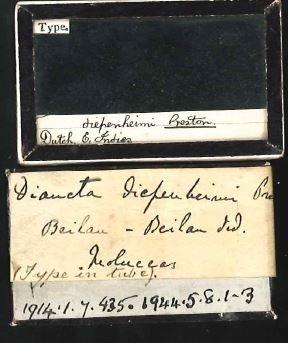 Type.
diepenheimi Preston.
Dutch E. Indies
Diancta diepenheimi Pre
Beilan - Beilan Isd.
Moluccas
(Type in tube).
1914.1.7.435. 1944.5.8.1-3